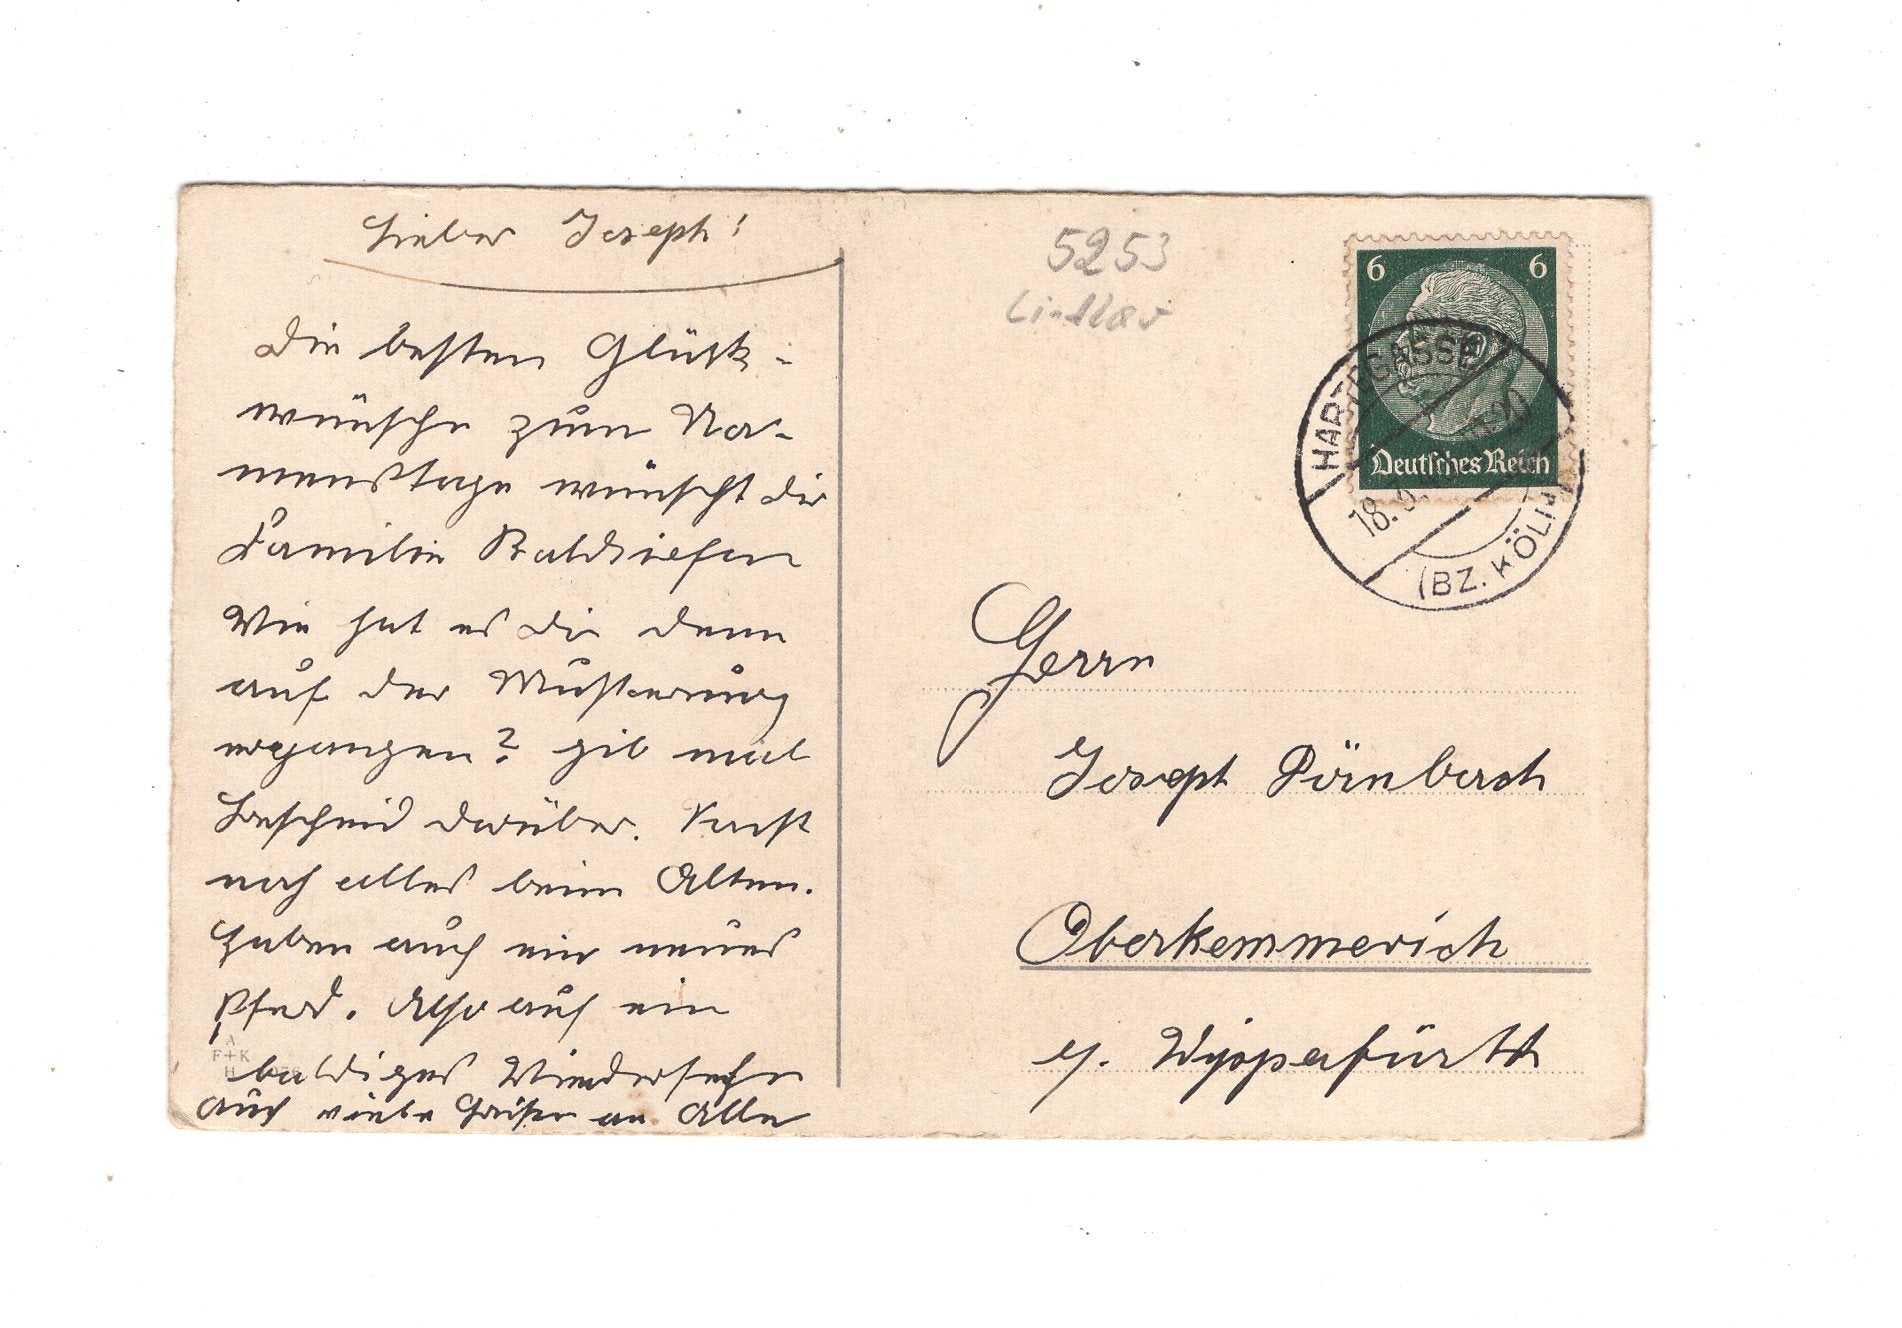 Lieber Joseph!
Die besten Glück-
wünsche zum Na-
menstage wünscht dir
Familie
Wie hat es dir denn
auf der Musterung
ergangen? gib mal
Bescheid darüber. Sonst
noch alles beim Alten.
Haben auch ein neues
Pferd. Also auf ein
baldiges Wiedersehn
Auch viele Grüße an Alle
A
F+K
H
5253
Lindlar
6 6
Deutsches Reich
HARTEGASSE
18.3.
(BZ. KÖLN)
Herrn
Joseph Dörnbach
Oberkemmerich
b/. Wipperfürth